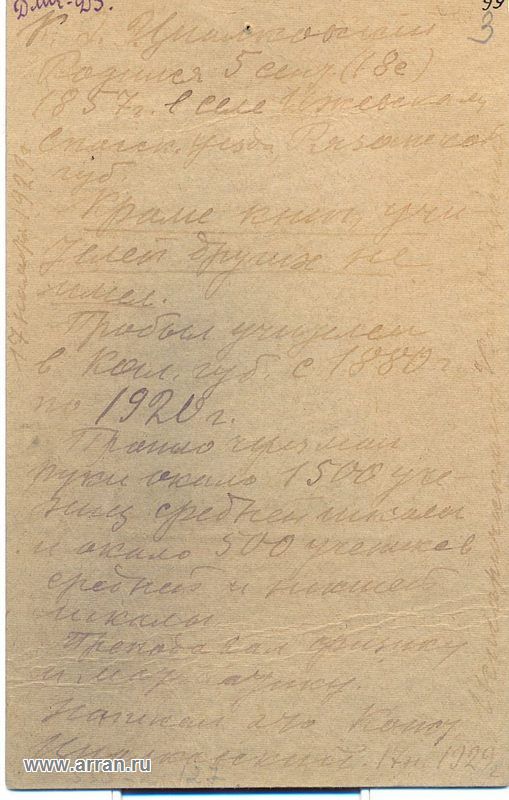 К. Э. Циолковский
Родился 5 сент. (18 с)
1857 г. в селе Ижевском,
Спасск. уезда Рязанской
губ.
Кроме книг, учи-
телей других не
имел.
Пробыл учителем
в Кал. губ. с 1880 г.
по 1920 г.
Прошло через мои
руки около 1500 уче-
ниц средней школы
и около 500 учеников
средней и низшей
школы
Преподавал физику
и математику.
Циолковский. 17 н. 1929 г
17 ноября 1929 г.
www.arran.ru